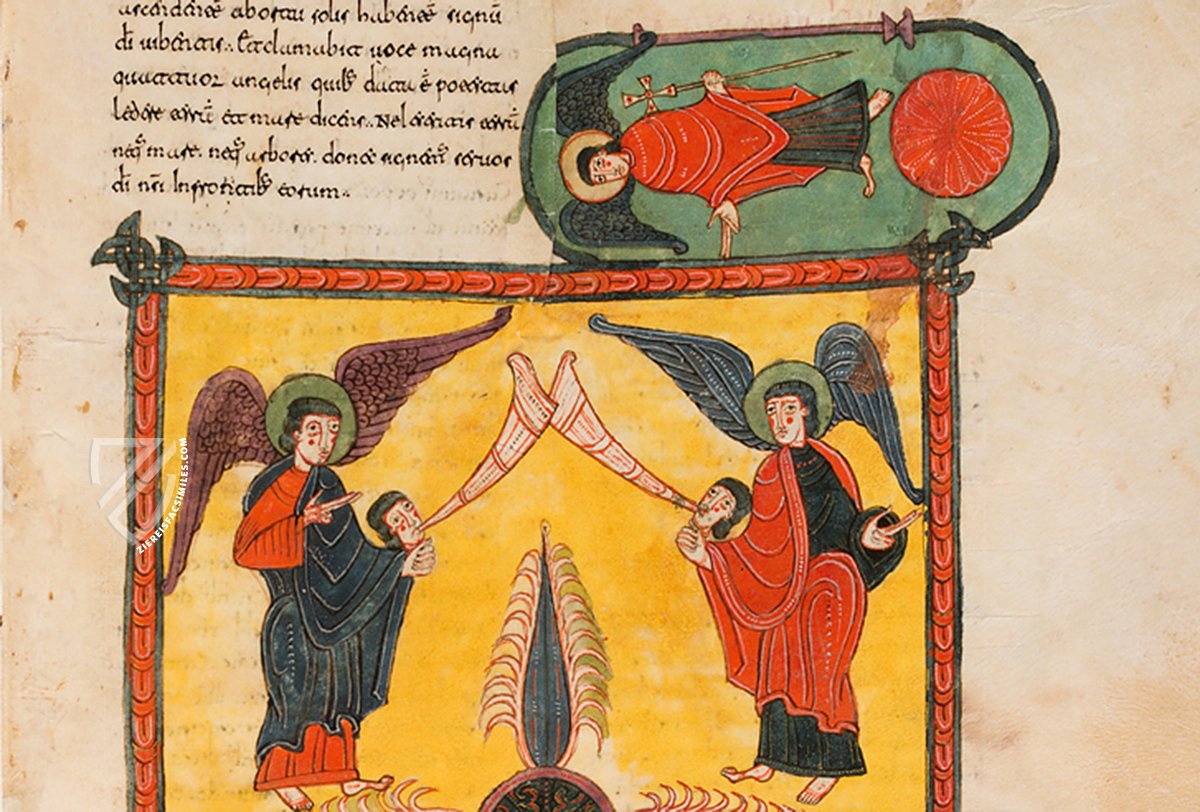 ascendentē abortu solis habentē signū
dī vibentis. Et clamabit voce magna
quattuor angelis quib; datū ē potestas
ledere terrā et mare dicens. Ne leseritis terrā
neq; mare. neq; arbores. donec signem servos
dī nsī In frontib; eorum.
ZIEREISFACSIMILES.COM